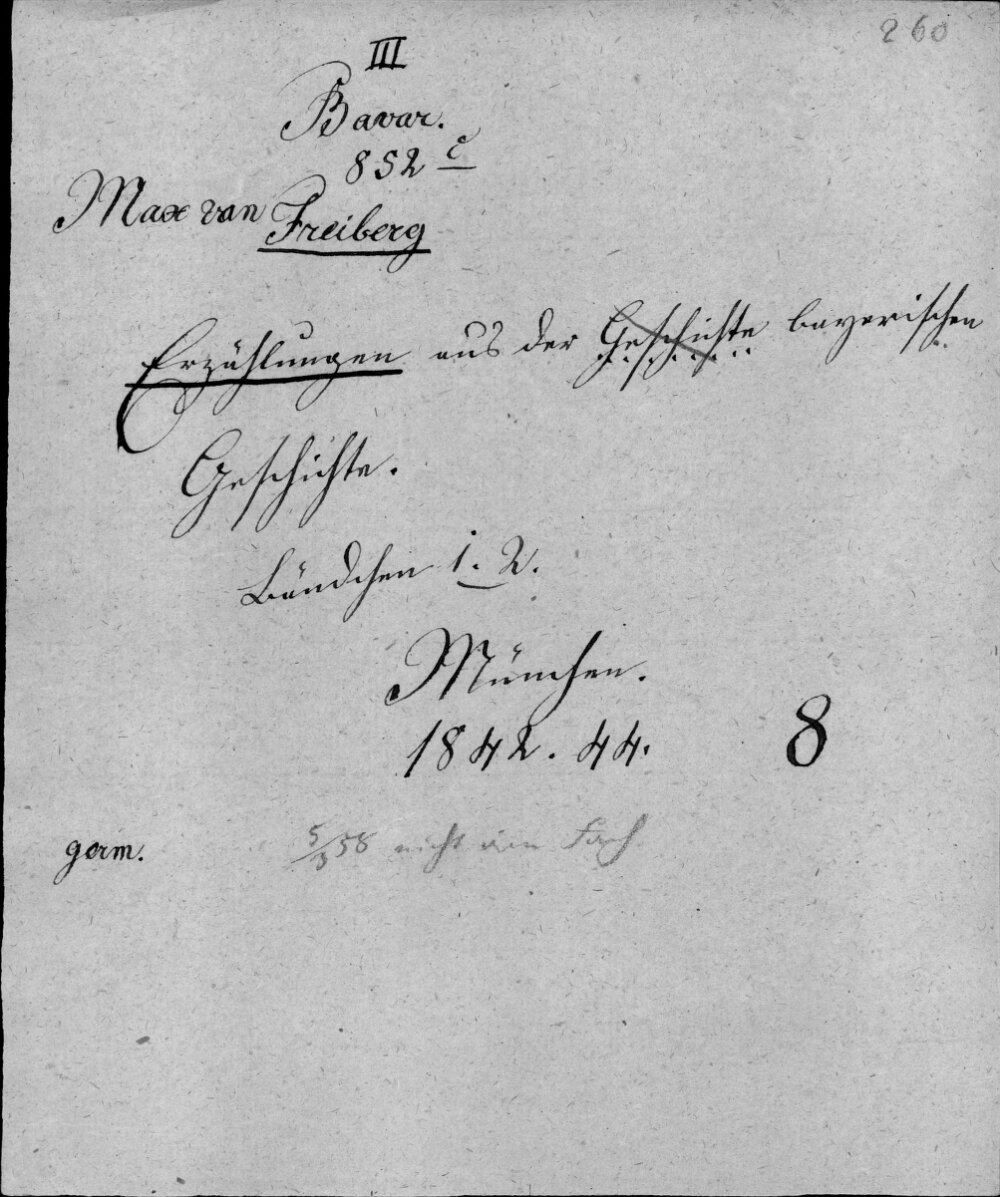 260
III
Bavar.
852 c
Max von Freiberg
Erzählungen aus der Geschichte bayerischen
Geschichte.
Bändchen 1. 2.
München.
1842. 44.
8
germ.
5/8 58 nicht im Fach